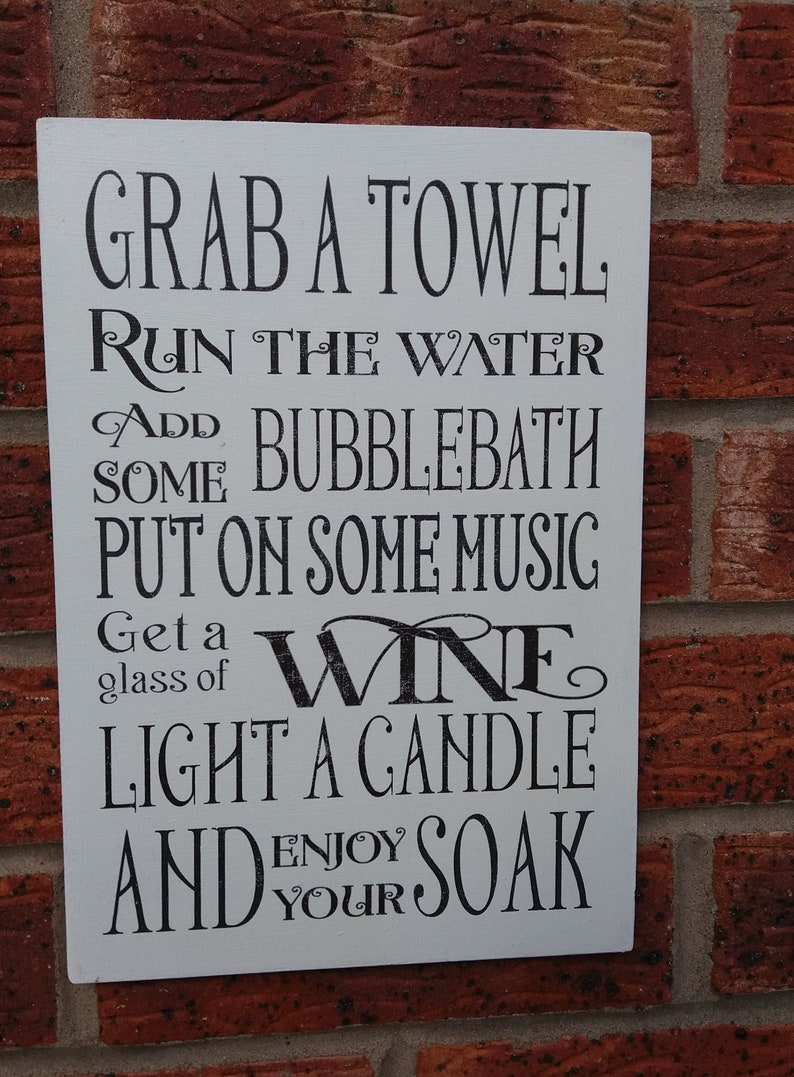 GRAB A TOWEL
RUN THE WATER
ADD
SOME BUBBLEBATH
PUT ON SOME MUSIC
Get a
glass of WINE
LIGHT A CANDLE
AND ENJOY
YOUR SOAK